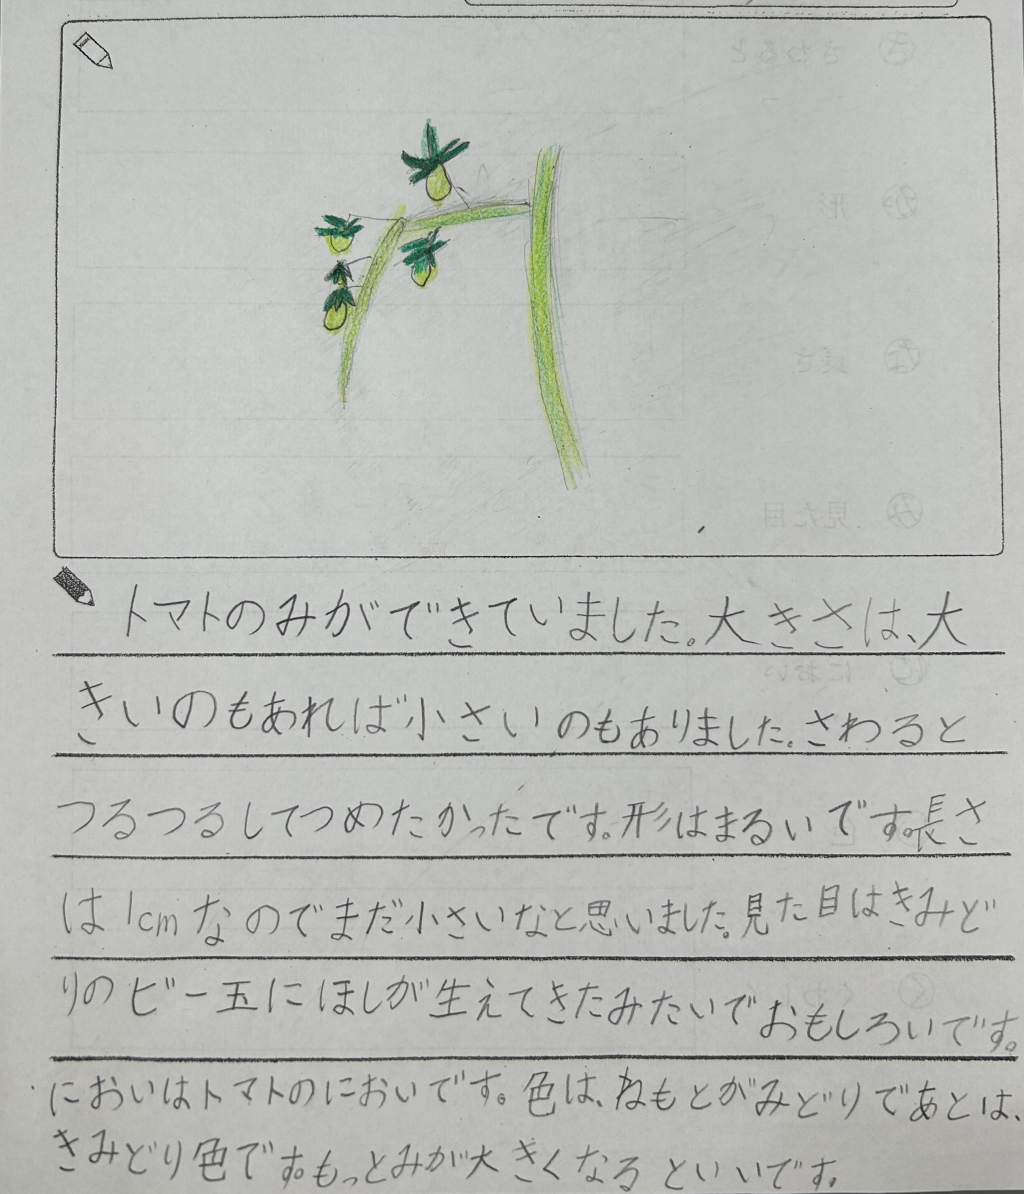 トマトのみができていました。大きさは、大
きいのもあれば小さいのもありました。さわると
つるつるしてつめたかったです。形はまるいです。長さ
は1cmなのでまだ小さいなと思いました。見た目はきみど
りのビー玉にほしが生えてきたみたいでおもしろいです。
においはトマトのにおいです。色は、ねもとがみどりであとは、
きみどり色です。もっとみが大きくなるといいです。